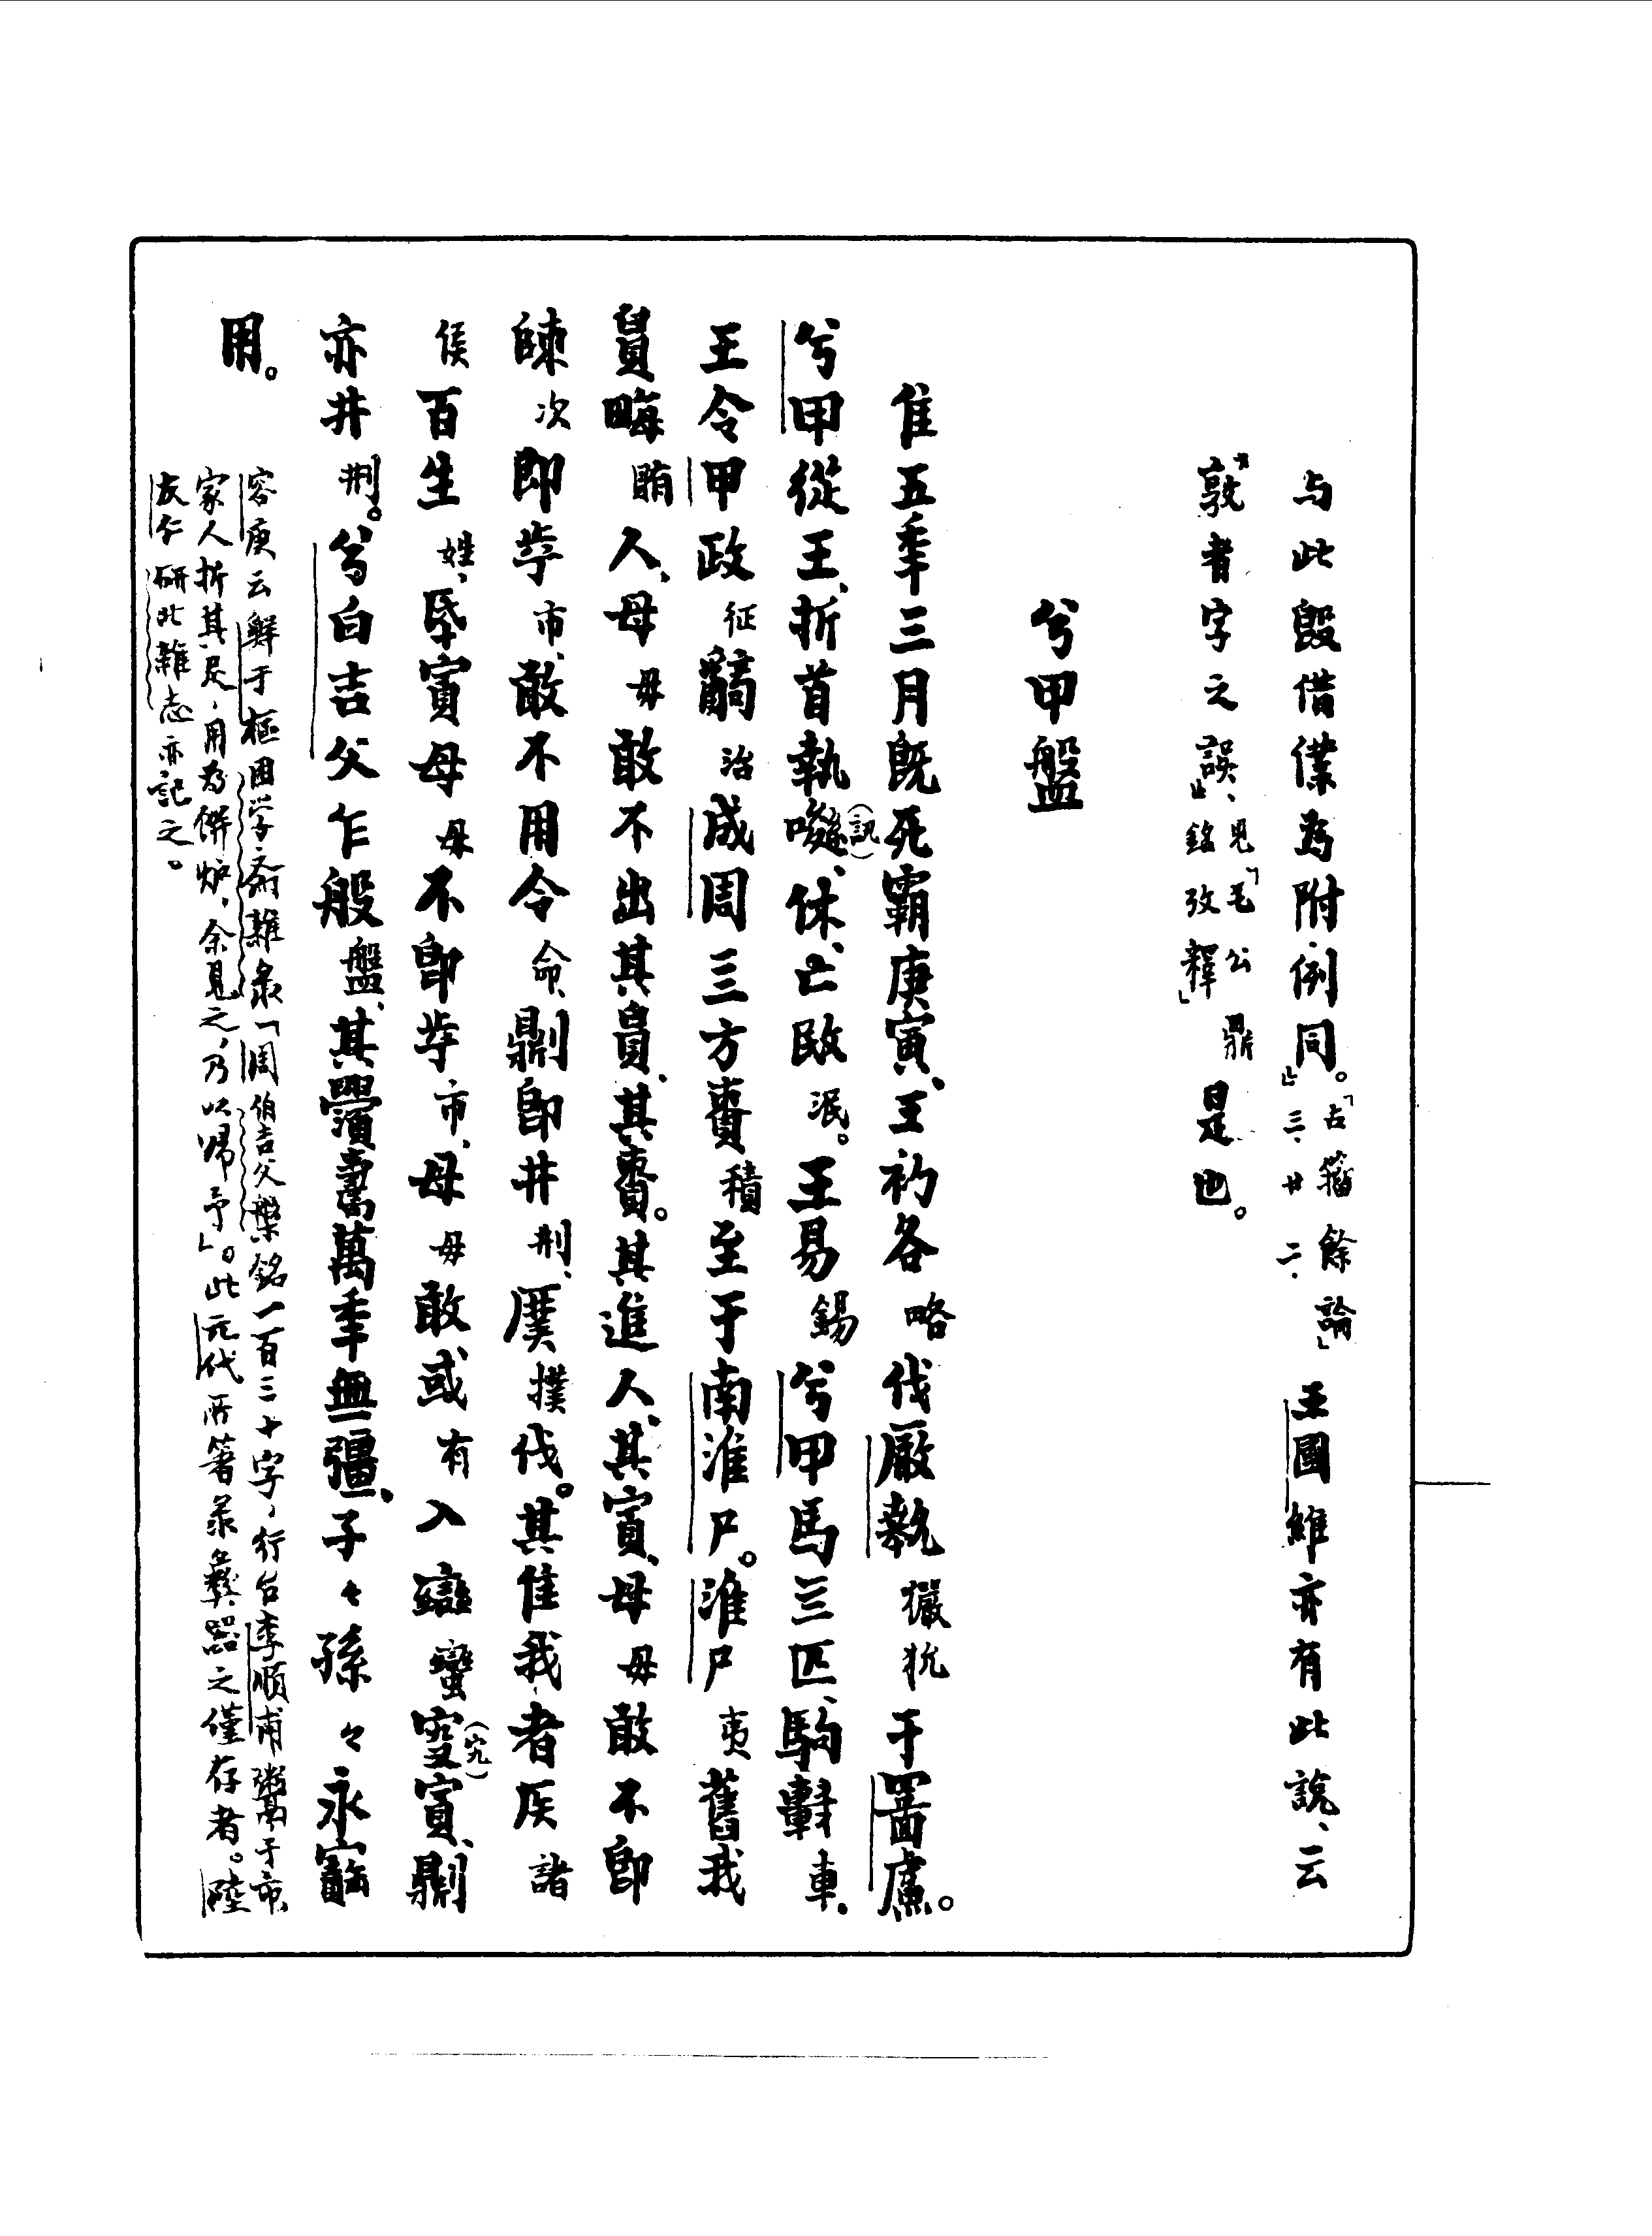 与此𣪘借僕為附、例同。』「古籀餘論」三·廿二、王國維亦有此說、云
『敦者字之誤』、見「毛公鼎銘攷釋」是也。
兮甲盤
隹五年三月既死霸庚寅、王初各略伐厰𤞤玁狁于䣙䖒。
兮甲從王、折首執嚘(訊)、休、亡敃泯。王易錫兮甲馬三匹、駒車車、
王令甲政征𤔲治成周三方責積至于南淮尸。淮尸夷舊我
𪉖畮賄人、母毋敢不出其𪉖、其責。其進人、其賓、母毋敢不卽
𠂤次即𡴎市、敢不用令命、劓卽井刑、𢿱撲伐。其隹我者㕅諸
侯百生姓、氒賓母毋不卽𡴎市、母毋敢或有入䜌蠻𡧛(宄)賓、劓
亦井刑。兮白吉父乍般盤、其釁壽萬年無疆、子々孫々永寶
用。
容庚云鮮于樞困学斋雜录「周伯吉父槃銘一百三十字，行台李順甫鬻于市、
家人折其足，用為餅炉，余見之，乃以歸予」。此元代所箸录彝器之僅存者。陸
友仁研北雜志亦記之。